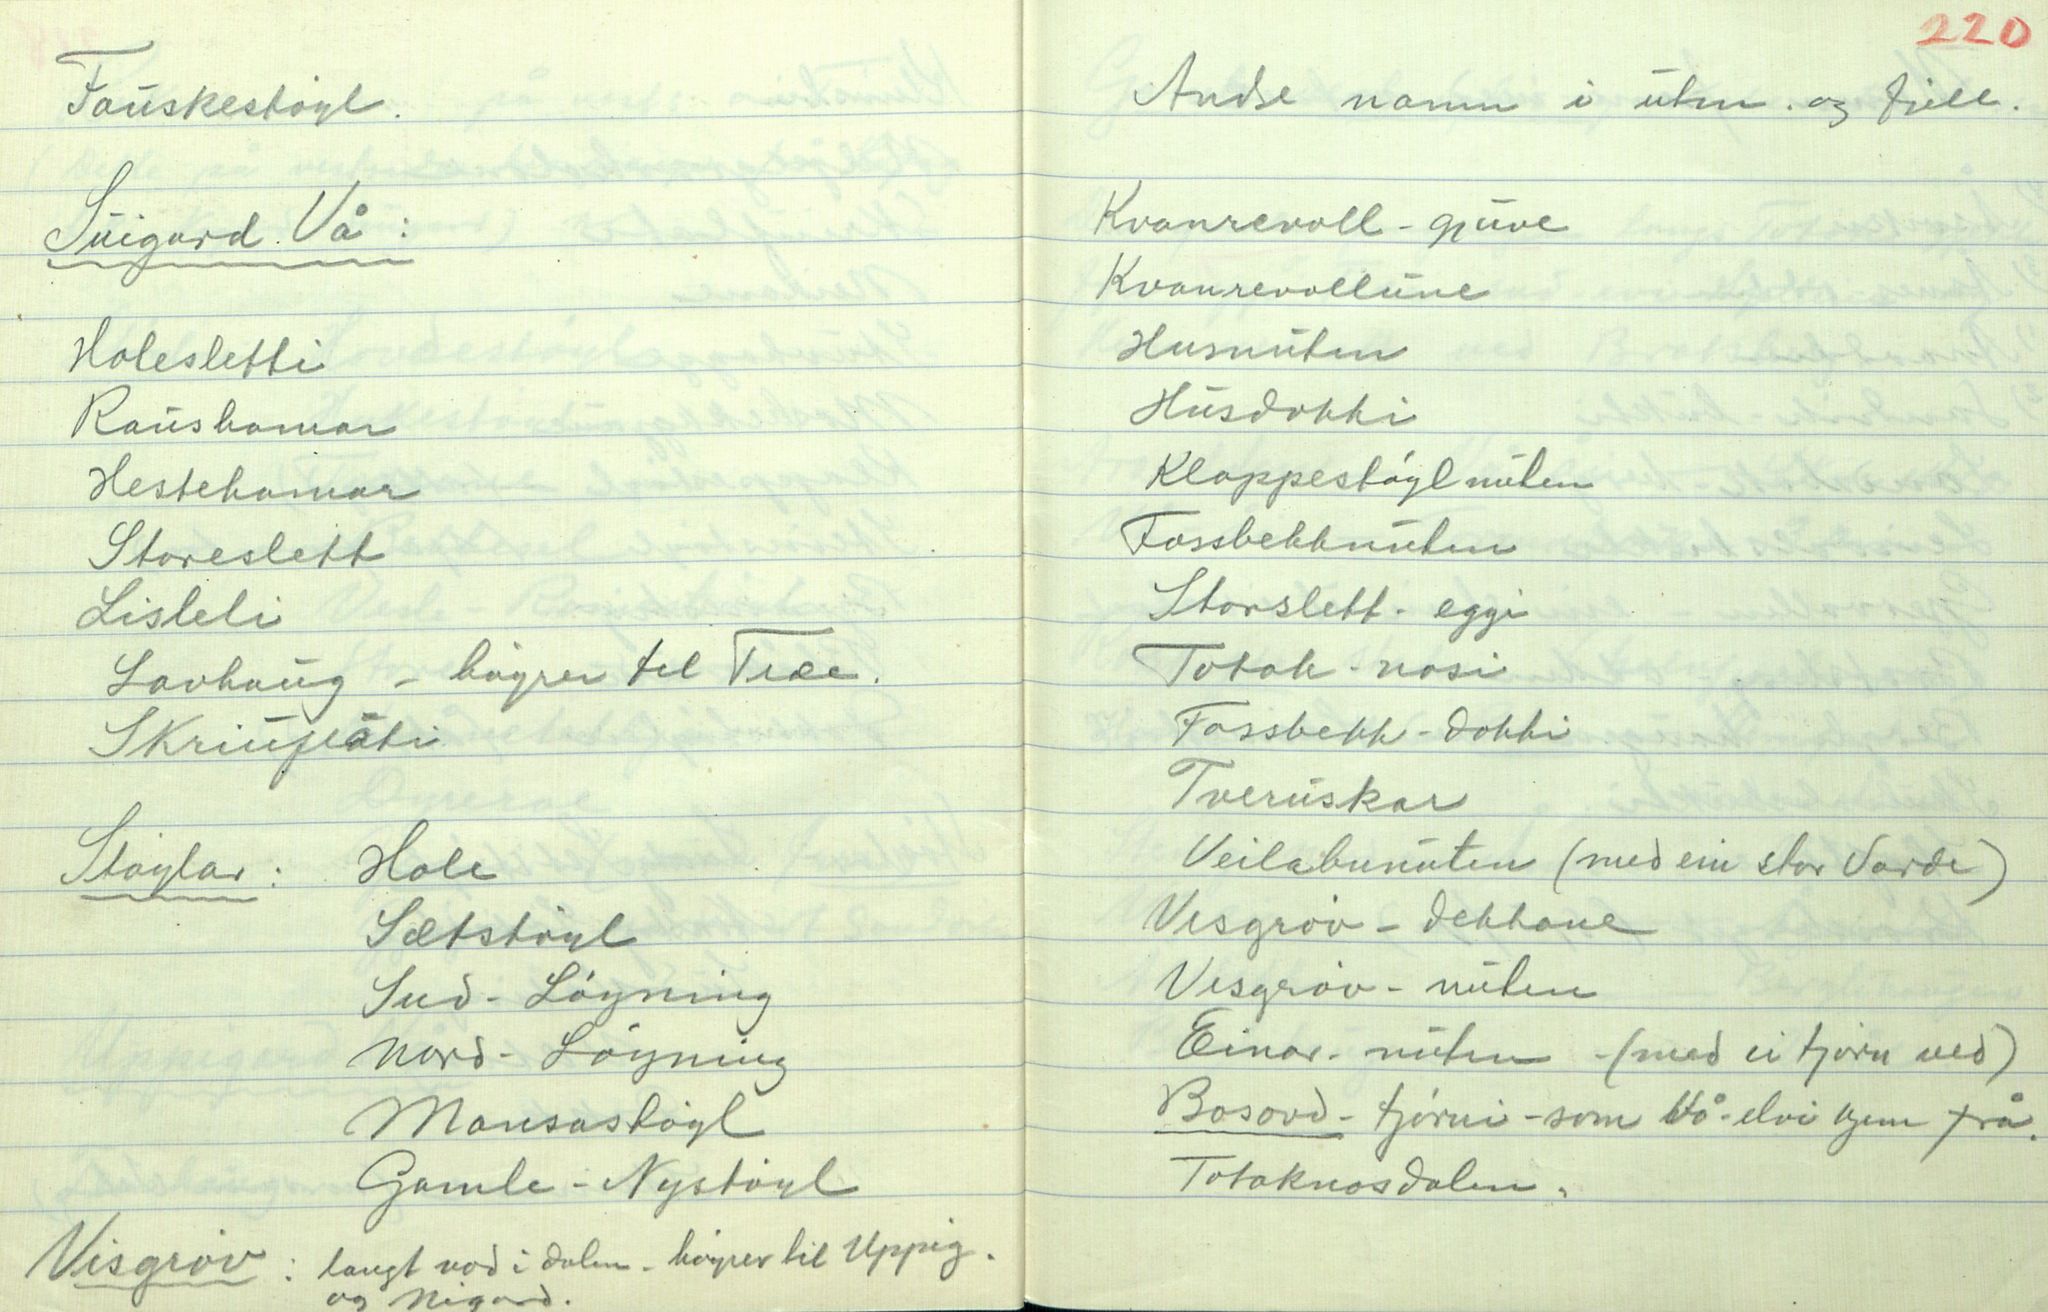 Fauskestøyl.
Suigard Vå:
Holesletti
Raushamar
Hestehamar
Storeslett
Lisleli
Lavhaug - høyrer til Træe.
Skriuplåti
Støylar: Hole
Sætstøyl
Sud- Løyning
Nord- Løyning
Mansastøyl
Gamle - Nystøyl
Visgrøv: langt nod i dalen - høyrer til Uppig.
og Nigard.
220
Andre namn i utm. og fjell.
Kvanrevoll - gjuve
Kvanrevollune
Husnuten
Husdokki
Kloppestøylnuten
Fossbekknuten
Storslett - eggi
Totak - nosi
Fossbekk - dokki
Tveruskar
Veilabunuten (med ein stor Varde)
Visgrøv - dekkane
Visgrøv - nuten
Einar - nuten - (med ei tjørn ved)
Bosovd - tjørni - som Vå-elvi kjem frå.
Totaknosdalen.